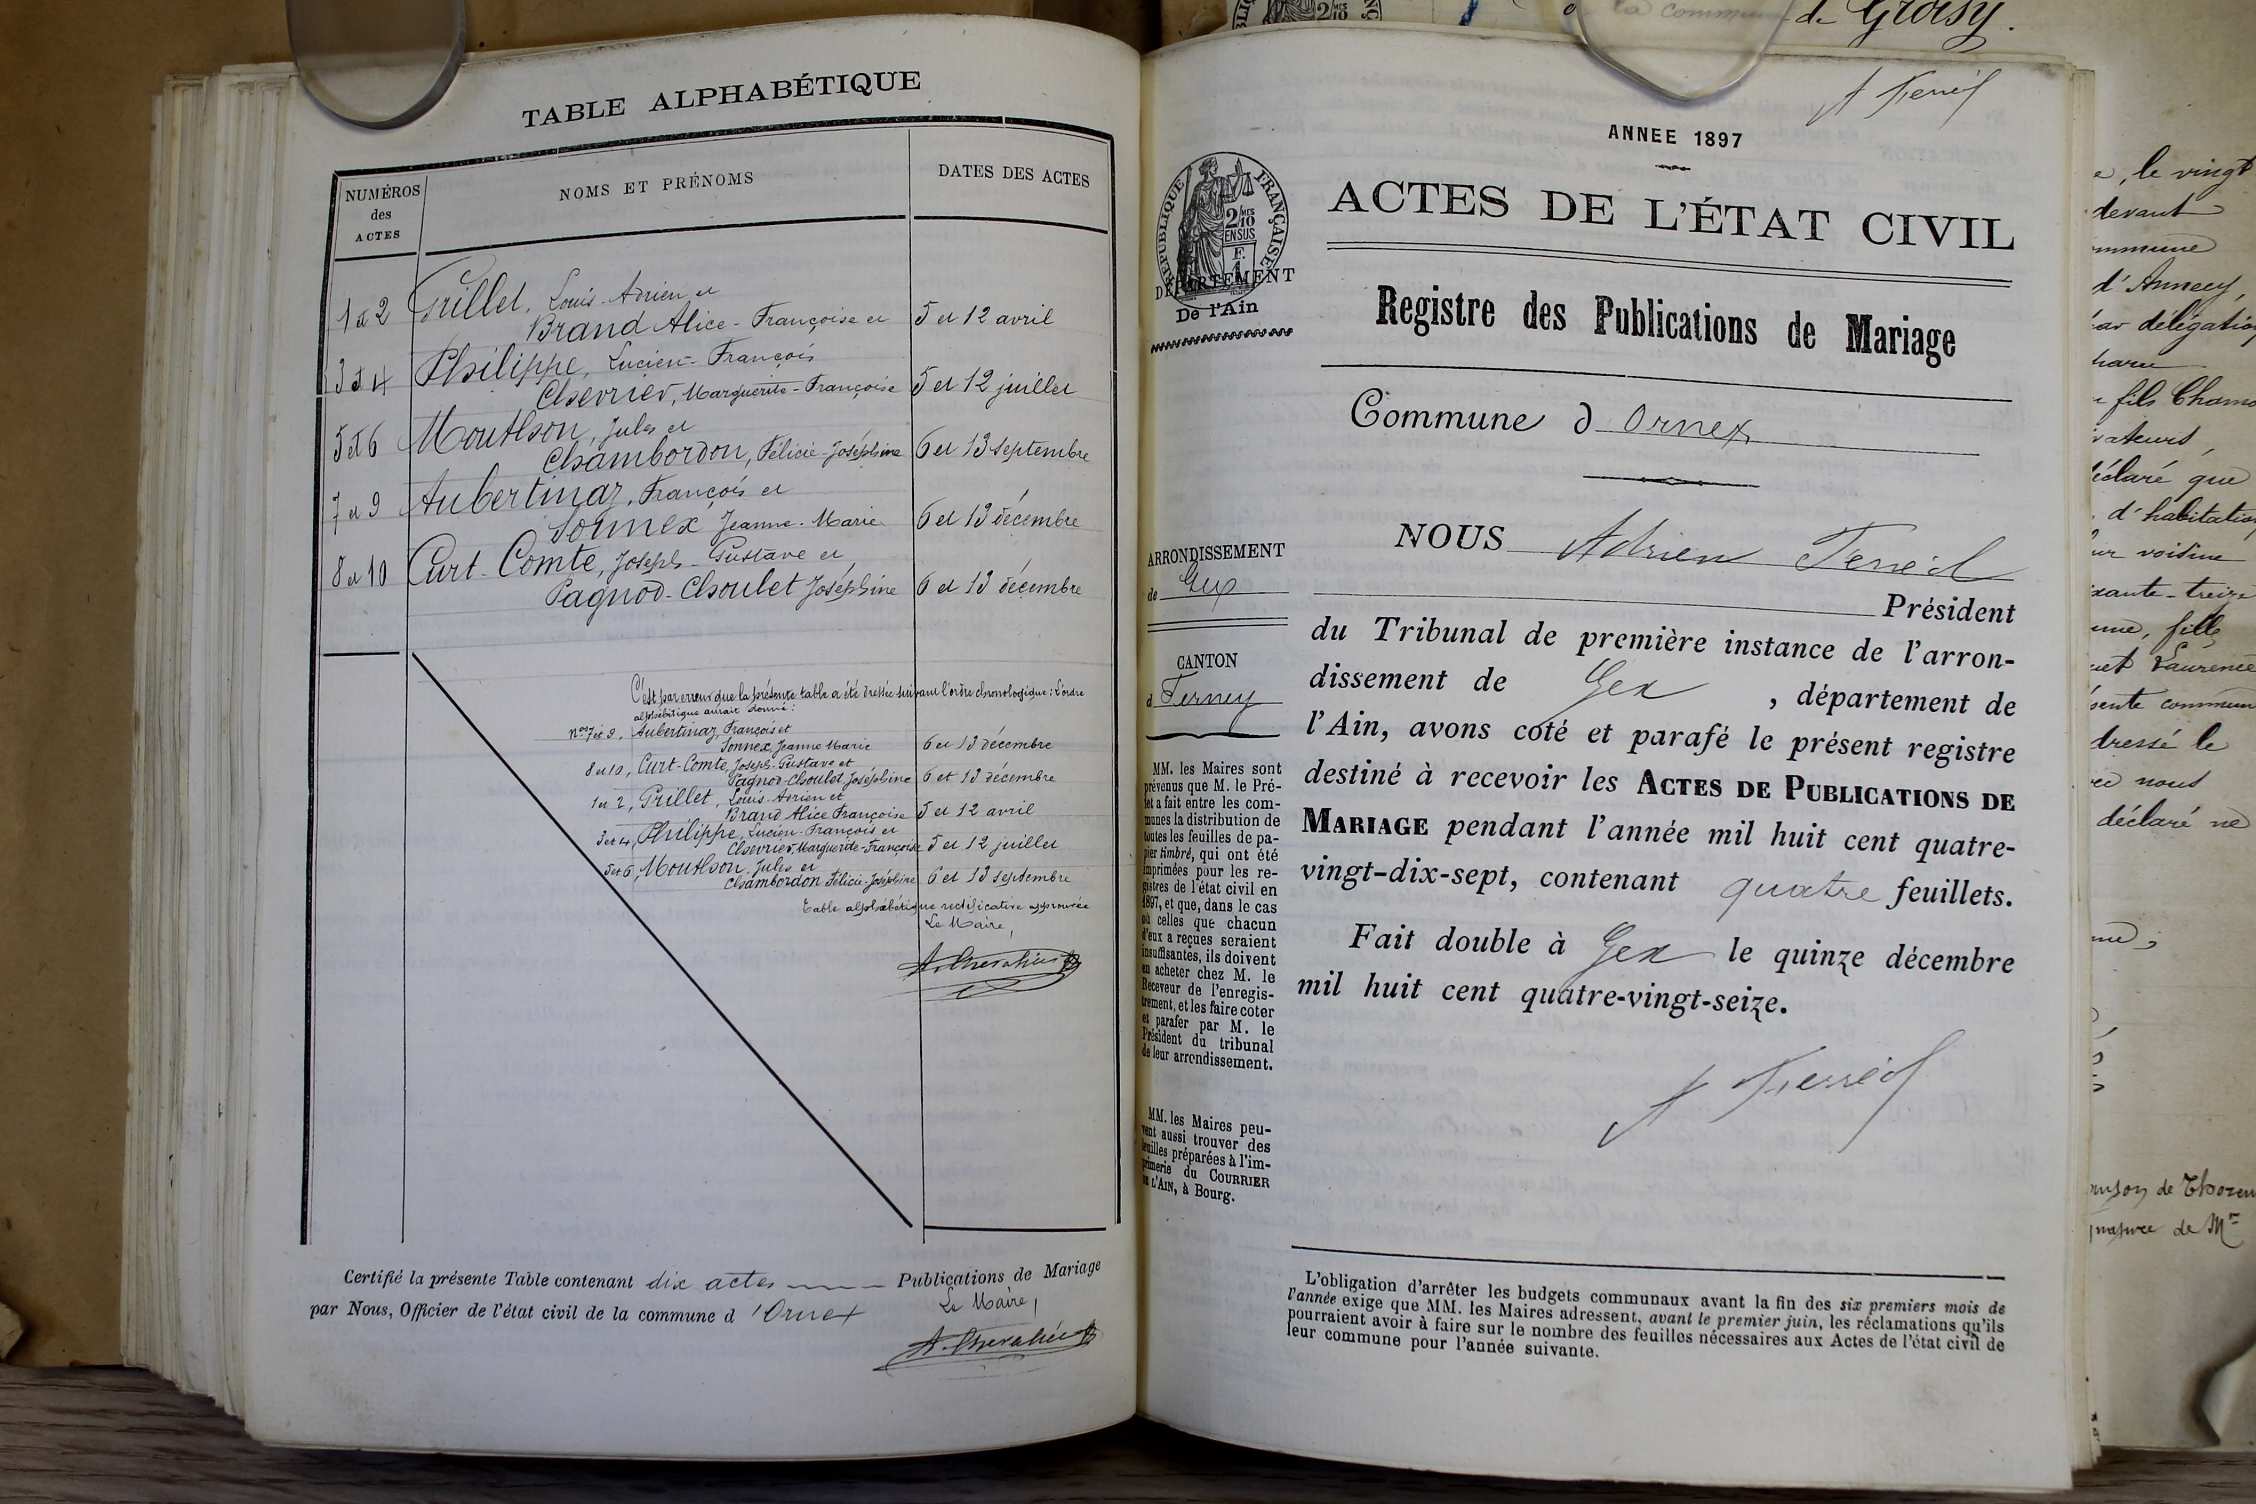 TABLE ALPHABÉTIQUE
NUMÉROS des ACTES
NOMS ET PRÉNOMS
DATES DES ACTES
1 et 2 Grillet, Louis-Adrien et
Brand Alice-Françoise et 5 et 12 avril
3 et 4 Philippe, Lucien-François
Chevrier, Marguerite-Françoise 5 et 12 juillet
5 et 6 Mouthon, Jules et
Chambordon, Félicie-Joséphine 6 et 13 septembre
7 et 9 Aubertinaz, François et
Sonnex, Jeanne-Marie 6 et 13 décembre
8 et 10 Curt-Comte, Joseph-Gustave et
Pagnod-Choulet Joséphine 6 et 13 décembre
C'est par erreur que la présente table a été dressée suivant l'ordre chronologique: l'ordre
alphabétique aurait donné:
nos 7 et 9, Aubertinaz, François et
Sonnex, Jeanne Marie 6 et 13 décembre
8 et 10, Curt-Comte, Joseph-Gustave et
Pagnod-Choulet Joséphine 6 et 13 décembre
1 et 2, Grillet, Louis-Adrien et
Brand Alice Françoise 5 et 12 avril
3 et 4, Philippe, Lucien-François et
Chevrier, Marguerite-Françoise 5 et 12 juillet
5 et 6, Mouthon, Jules et
Chambordon Félicie-Joséphine 6 et 13 septembre
Table alphabétique rectificative approuvée
Le Maire,
Certifié la présente Table contenant dix actes Publications de Mariage
par Nous, Officier de l'état civil de la commune d'Ornex
Le Maire,
de Groisy.
ANNEE 1897
RÉPUBLIQUE FRANÇAISE
2/10 MES
EN SUS
F.
1
DÉPARTEMENT
De l'Ain
ACTES DE L'ÉTAT CIVIL
Registre des Publications de Mariage
Commune d Ornex
ARRONDISSEMENT
de Gex
CANTON
d Ferney
MM. les Maires sont
prévenus que M. le Pré-
fet a fait entre les com-
munes la distribution de
toutes les feuilles de pa-
pier timbré, qui ont été
imprimées pour les re-
gistres de l'état civil en
1897, et que, dans le cas
où celles que chacun
d'eux a reçues seraient
insuffisantes, ils doivent
en acheter chez M. le
Receveur de l'enregis-
trement, et les faire coter
et parafer par M. le
Président du tribunal
de leur arrondissement.
MM. les Maires peu-
vent aussi trouver des
feuilles préparées à l'im-
primerie du COURRIER
DE L'AIN, à Bourg.
NOUS Adrien
Président
du Tribunal de première instance de l'arron-
dissement de Gex, département de
l'Ain, avons coté et parafé le présent registre
destiné à recevoir les ACTES DE PUBLICATIONS DE
MARIAGE pendant l'année mil huit cent quatre-
vingt-dix-sept, contenant quatre feuillets.
Fait double à Gex le quinze décembre
mil huit cent quatre-vingt-seize.
L'obligation d'arrêter les budgets communaux avant la fin des six premiers mois de
l'année exige que MM. les Maires adressent, avant le premier juin, les réclamations qu'ils
pourraient avoir à faire sur le nombre des feuilles nécessaires aux Actes de l'état civil de
leur commune pour l'année suivante.
le vingt
devant
d'Annecy,
délégation
fils
déclaré que
d'habitation
voisine
fille
Laurence
dressé le
nous
déclaré ne
de Mr